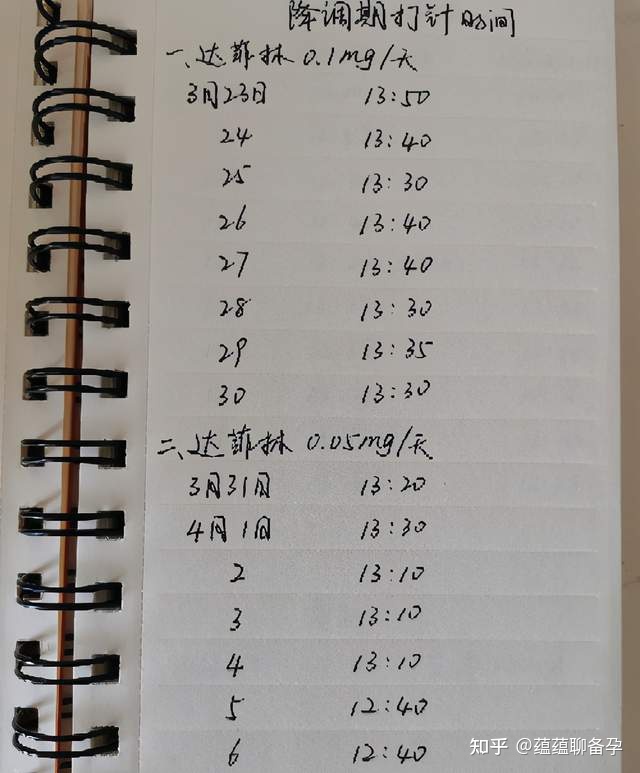 降调期打针时间
一、达菲林 0.1mg/天
3月23日 13:50
24 13:40
25 13:30
26 13:40
27 13:40
28 13:30
29 13:35
30 13:30
二、达菲林 0.05mg/天
3月31日 13:20
4月1日 13:30
2 13:10
3 13:10
4 13:10
5 12:40
6 12:40
知乎 @蕴蕴聊备孕